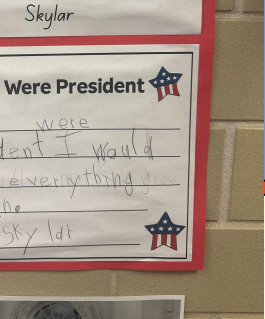 Skylar
Were President
were
dent I would
everything
Skylar